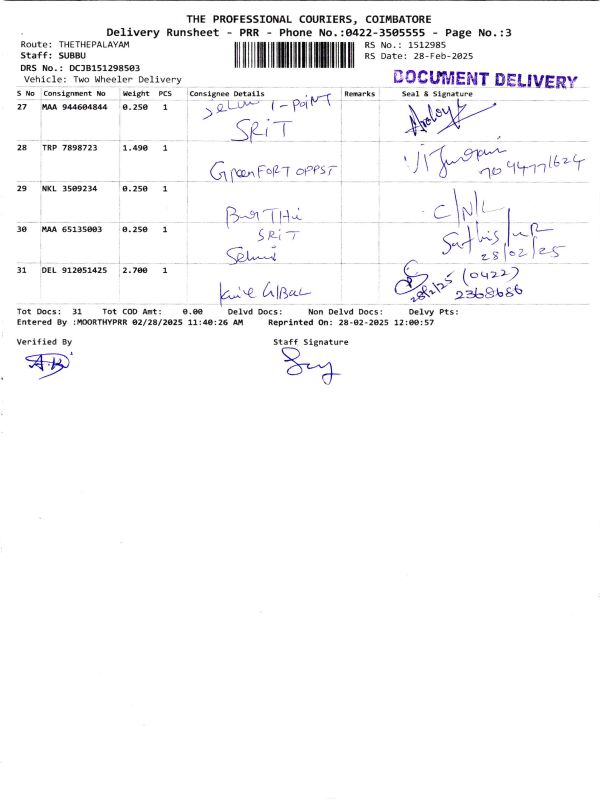 THE PROFESSIONAL COURIERS, COIMBATORE
Delivery Runsheet - PRR - Phone No.:0422-3505555 - Page No.:3
Route: THETHEPALAYAM RS No.: 1512985
Staff: SUBBU RS Date: 28-Feb-2025
DRS No.: DCJB151298503
Vehicle: Two Wheeler Delivery DOCUMENT DELIVERY
S No Consignment No Weight PCS Consignee Details Remarks Seal & Signature
27 MAA 944604844 0.250 1 I-POINT
SRIT
28 TRP 7898723 1.490 1
GreenFORT OPPST
29 NKL 3509234 0.250 1
C/N/L
30 MAA 65135003 0.250 1 SRIT
28/02/25
31 DEL 912051425 2.700 1 28/2/25 (0422)
2368686
Tot Docs: 31 Tot COD Amt: 0.00 Delvd Docs: Non Delvd Docs: Delvy Pts:
Entered By :MOORTHYPRR 02/28/2025 11:40:26 AM Reprinted On: 28-02-2025 12:00:57
Verified By Staff Signature